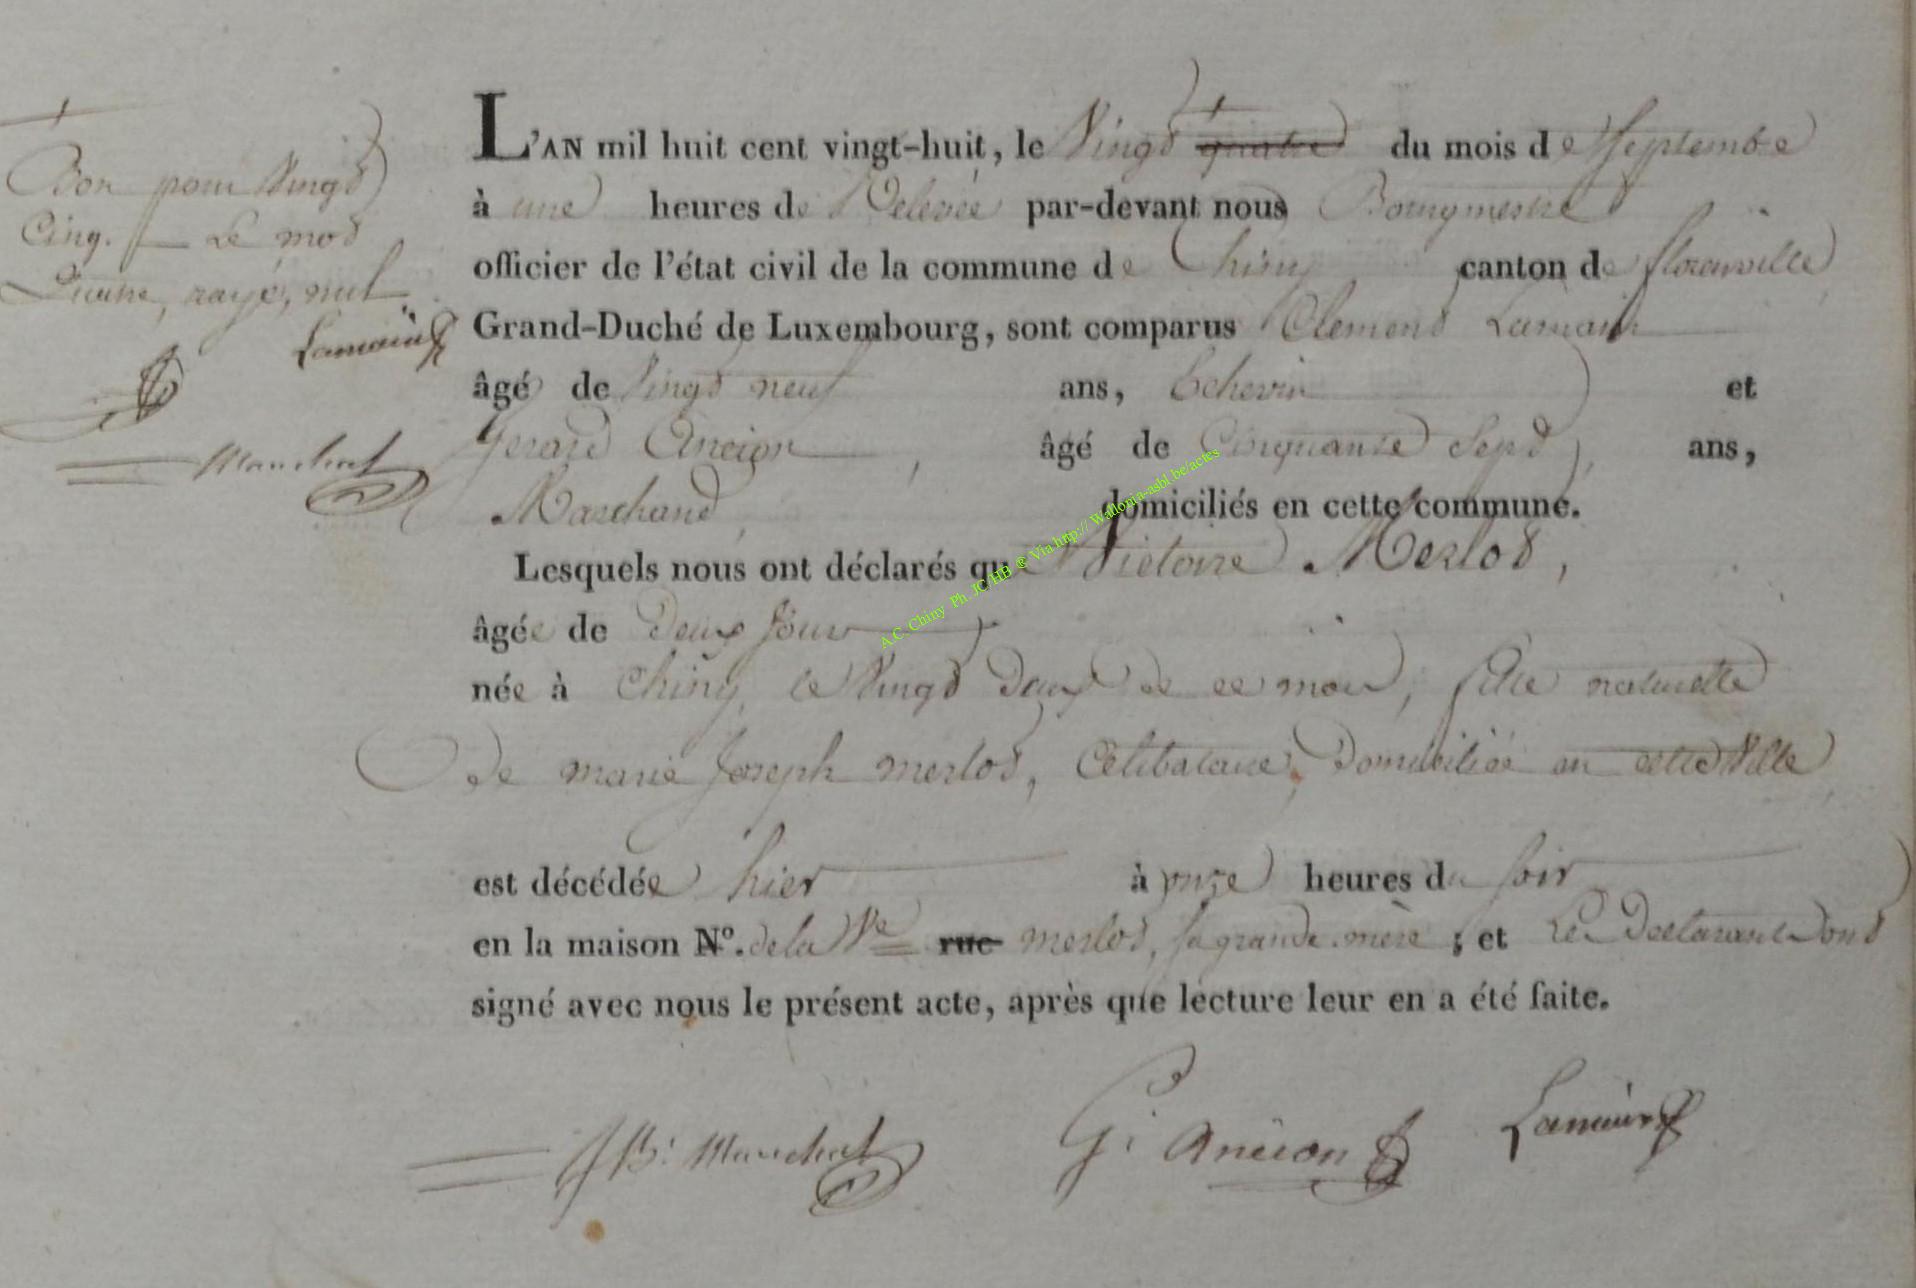 L'AN mil huit cent vingt-huit, le Vingt quatre du mois de Septembre
à une heures de Relevée par-devant nous Bourgmestre
officier de l'état civil de la commune de Chiny canton de florenville
Grand-Duché de Luxembourg, sont comparus Clement Lamain
âgé de Vingt neuf ans, Echevin et
Gerard Ancion, âgé de Cinquante Sept, ans,
Marchand, domiciliés en cette commune.
Lesquels nous ont déclarés que Victoire Merlot,
âgée de Deux Jour
née à Chiny, le Vingt Deux de ce mois, fille naturelle
de marie Joseph merlot, Célibataire, Domiciliée en cette Ville
est décédée hier à onze heures du soir
en la maison N°. de la Ve rue merlot, sa grande mère ; et Les Déclarants ont
signé avec nous le présent acte, après que lecture leur en a été faite.
JB. Marechal G. Ancion Lamain
Bon pour Vingt
Cinq. Le mot
rayé, nul
Lamain
Marechal
A.C. Chiny Ph. JC HB @ Via http:// Wallonia-asbl.be/actes